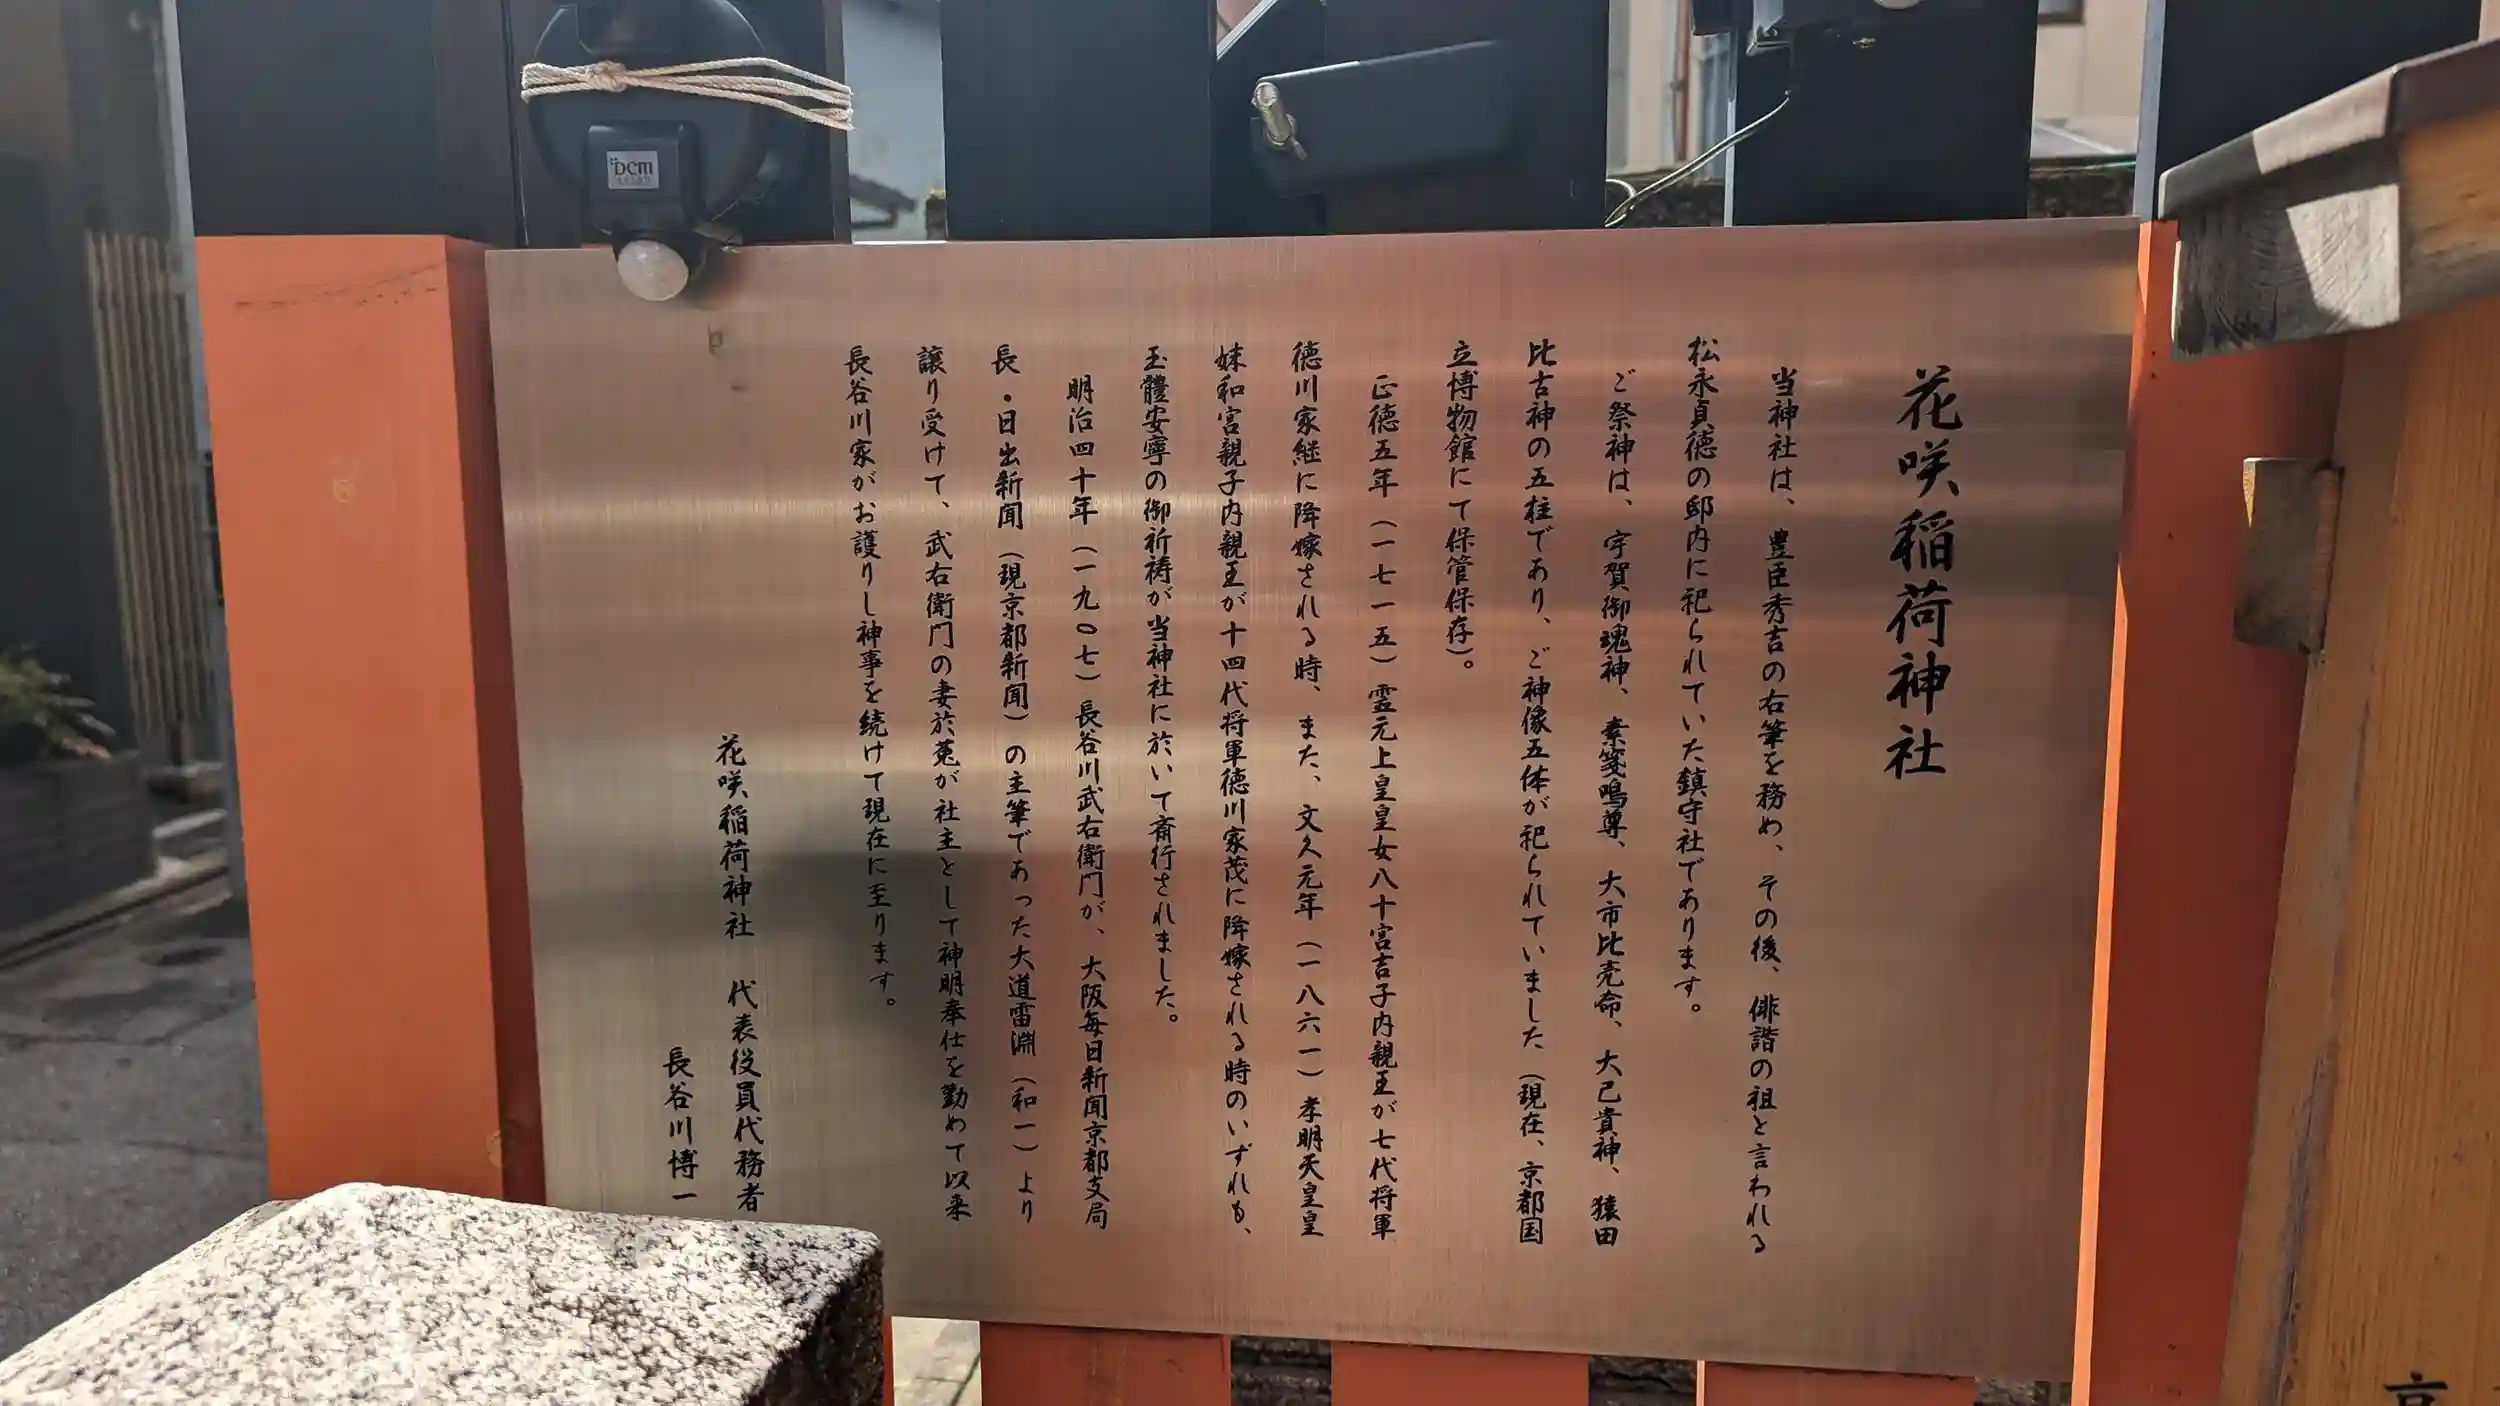 花咲稲荷神社
当神社は、豊臣秀吉の右筆を務め、その後、俳諧の祖と言われる
松永貞徳の邸内に祀られていた鎮守社であります。
ご祭神は、宇賀御魂神、素箋鳴尊、大市比売命、大己貴神、猿田
比古神の五柱であり、ご神像五体が祀られていました（現在、京都国
立博物館にて保管保存）。
正徳五年（一七一五）霊元上皇皇女八十宮吉子内親王が七代将軍
徳川家継に降嫁される時、また、文久元年（一八六一）孝明天皇皇
妹和宮親子内親王が十四代将軍徳川家茂に降嫁される時のいずれも、
玉體安寧の御祈祷が当神社に於いて斎行されました。
明治四十年（一九〇七）長谷川武右衛門が、大阪毎日新聞京都支局
長・日出新聞（現京都新聞）の主筆であった大道雷淵（和一）より
譲り受けて、武右衛門の妻於菟が社主として神明奉仕を勤めて以来
長谷川家がお護りし神事を続けて現在に至ります。
花咲稲荷神社　代表役員代務者
長谷川博一
DCM
京